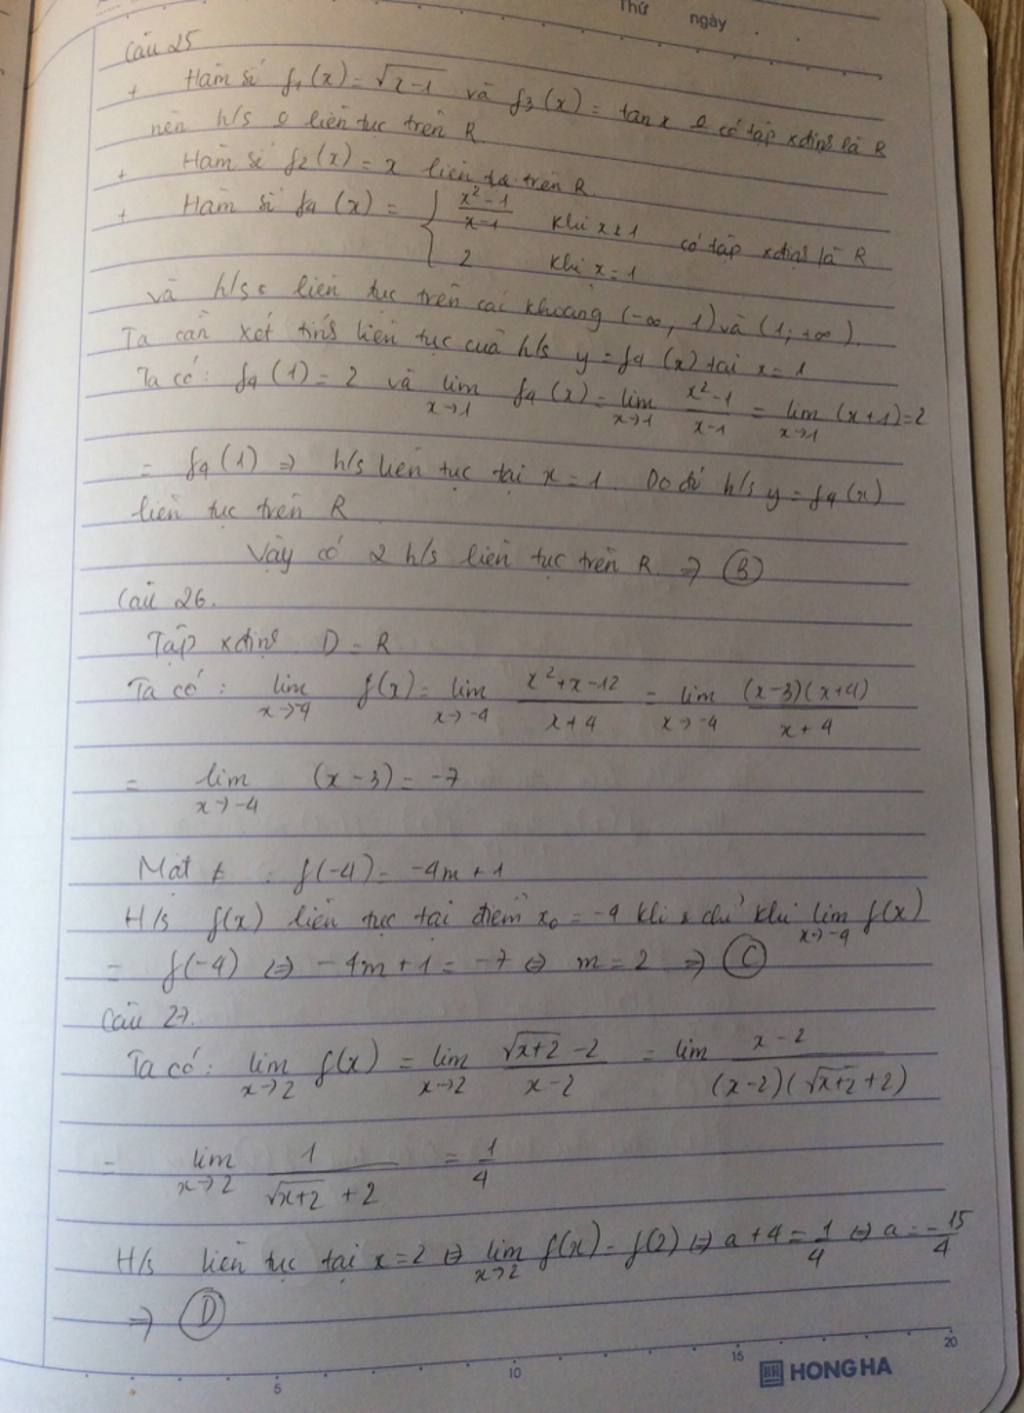 Thứ ngày
Câu 25
+ Hàm số f₁(x) = √x-1 và f₃(x) = tan x ko có tập xđịnh là R
nên h/s ko liên tục trên R
+ Hàm số f₂(x) = x liên tục trên R
+ Hàm số f₄(x) = { x²-1 / x-1 khi x ≠ 1 có tập xđịnh là R
2 khi x = 1
và h/s liên tục trên các khoảng (-∞, 1) và (1; +∞).
Ta cần xét tính liên tục của h/s y = f₄(x) tại x = 1
Ta có: f₄(1) = 2 và lim x→1 f₄(x) = lim x→1 x²-1 / x-1 = lim x→1 (x+1) = 2
= f₄(1) ⇒ h/s liên tục tại x = 1. Do đó h/s y = f₄(x)
liên tục trên R
Vậy có 2 h/s liên tục trên R ⇒ (B)
Câu 26.
Tập xđịnh D = R
Ta có: lim x→-4 f(x) = lim x→-4 x²+x-12 / x+4 = lim x→-4 (x-3)(x+4) / x+4
= lim x→-4 (x-3) = -7
Mặt ≠ : f(-4) = -4m+1
H/s f(x) liên tục tại điểm x₀ = -4 khi & chỉ khi lim x→-4 f(x)
= f(-4) ⇔ -4m+1 = -7 ⇔ m = 2 ⇒ (C)
Câu 27.
Ta có: lim x→2 f(x) = lim x→2 √x+2 - 2 / x-2 = lim x-2 / (x-2)(√x+2 + 2)
= lim x→2 1 / √x+2 + 2 = 1/4
H/s liên tục tại x = 2 ⇔ lim x→2 f(x) = f(2) ⇔ a+4 = 1/4 ⇔ a = -15/4
⇒ (D)
5 10 15 20
HONG HA